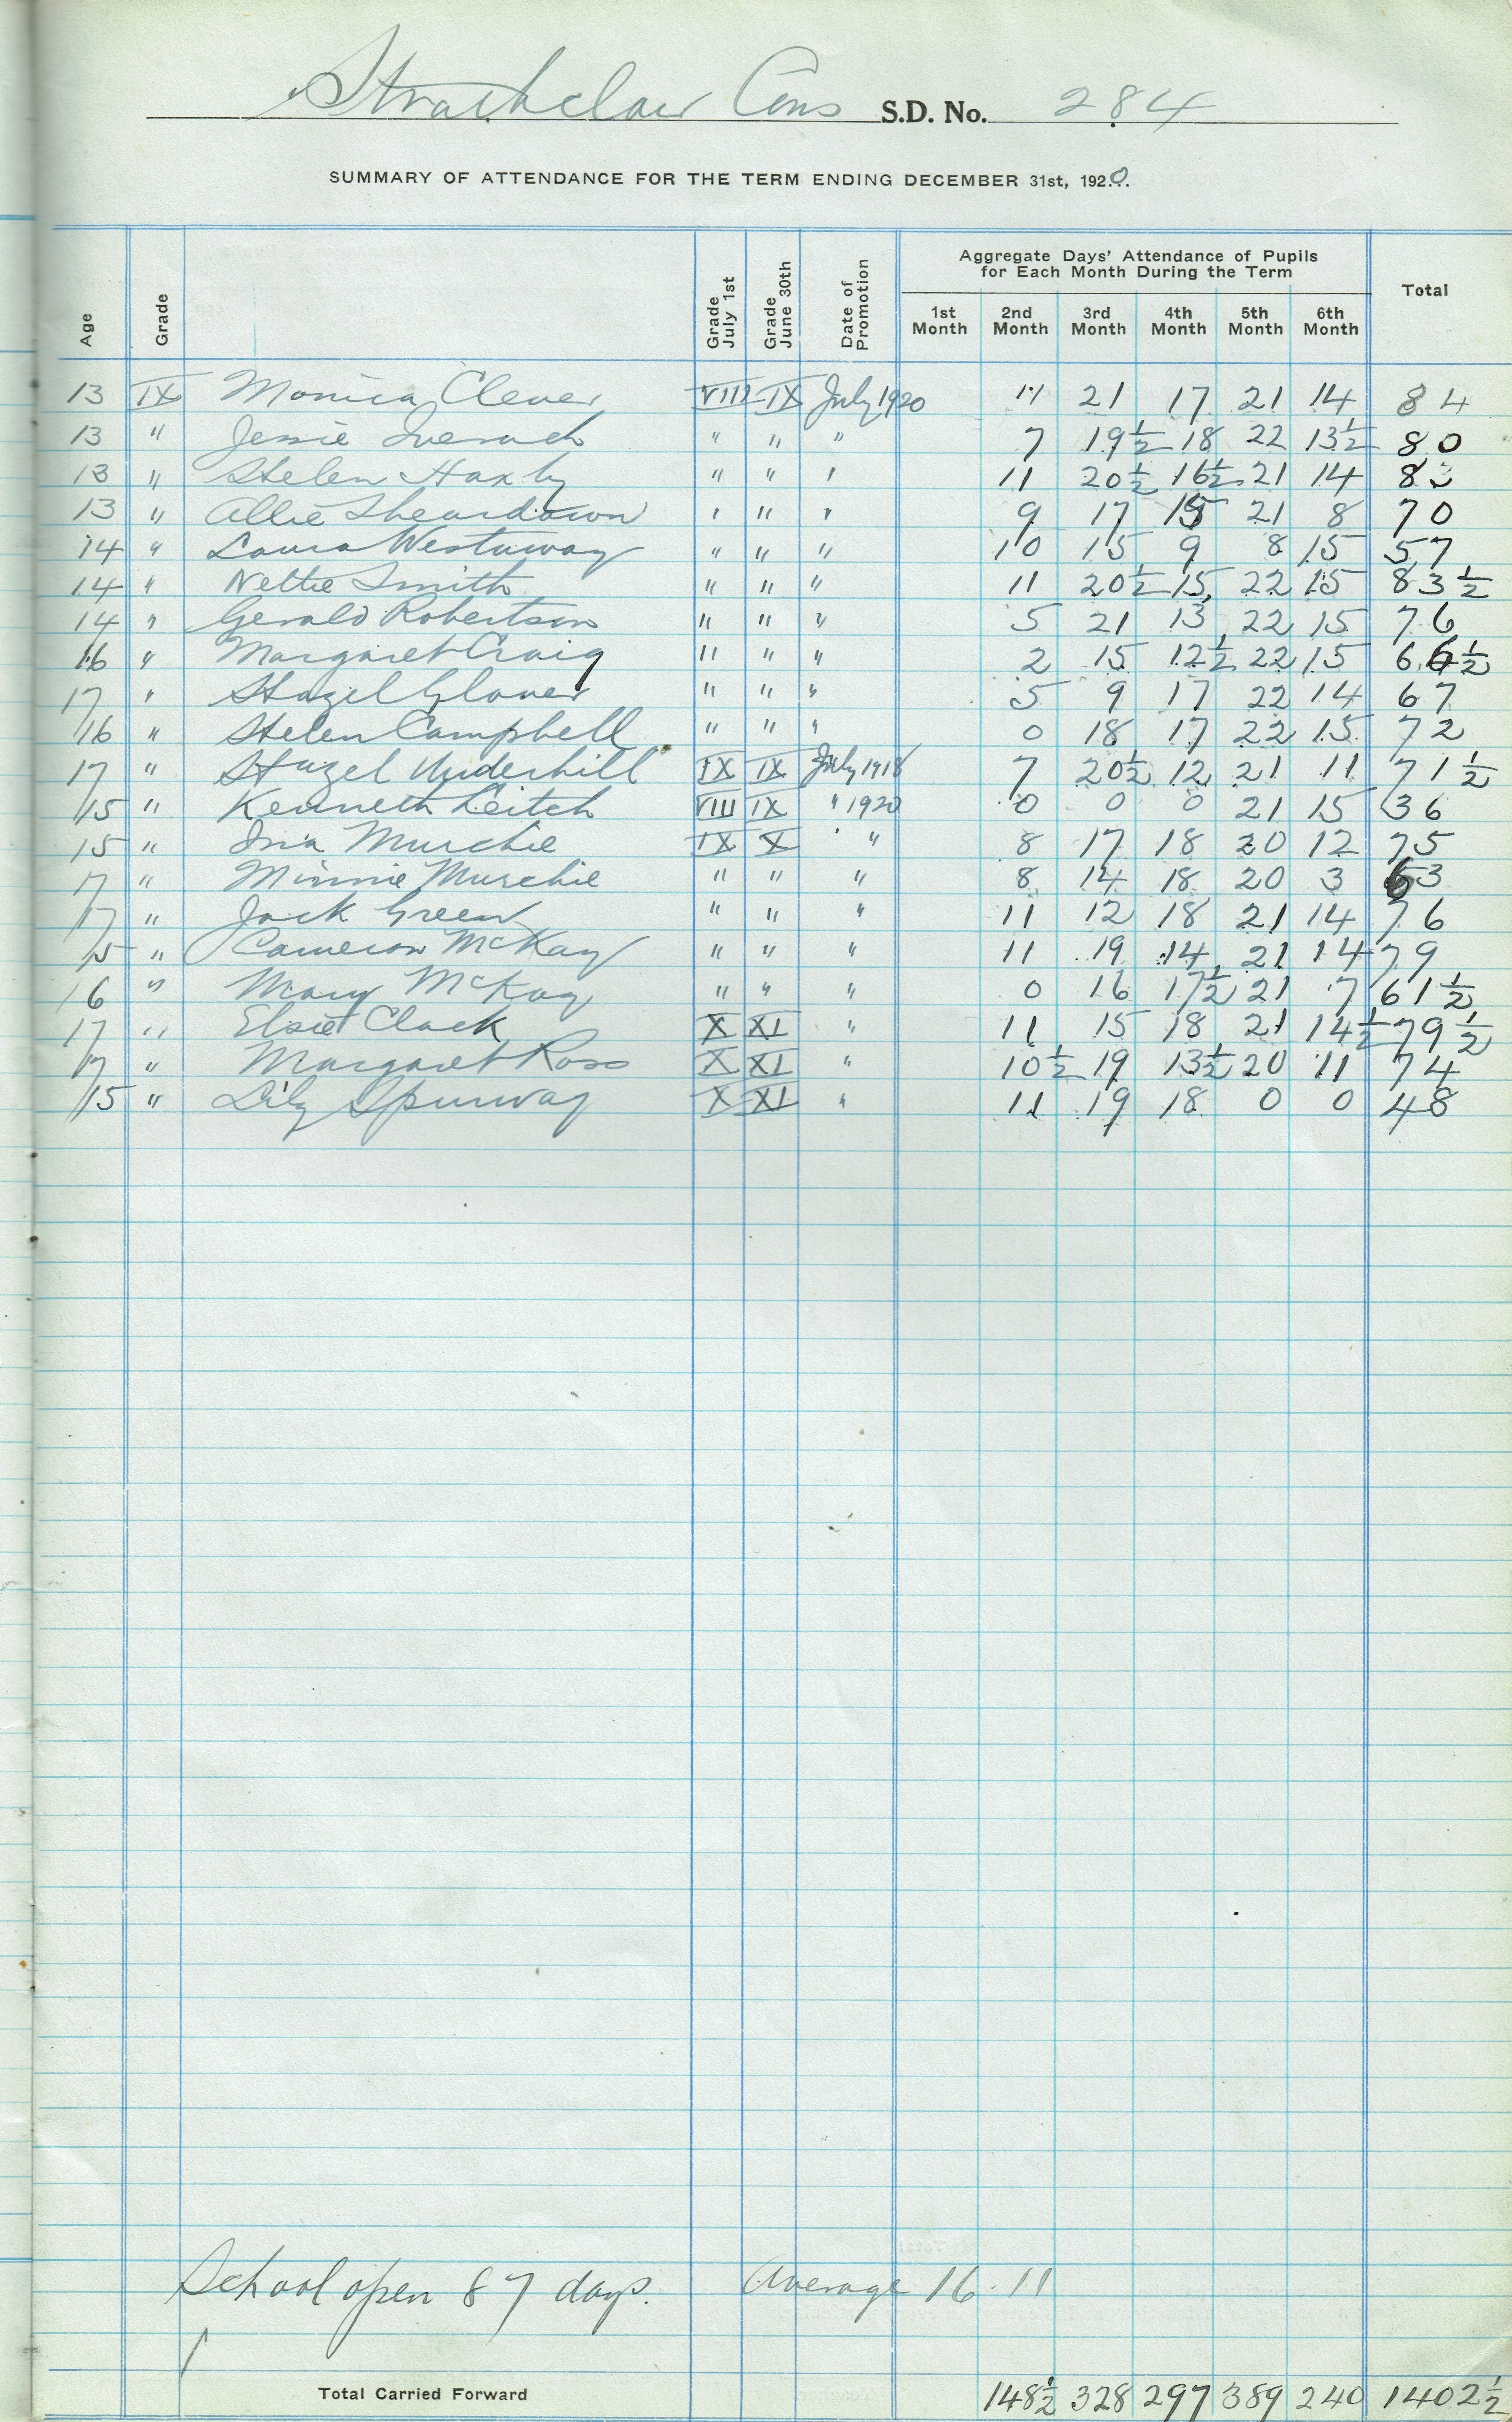 Strathclair Cons S.D. No. 284
SUMMARY OF ATTENDANCE FOR THE TERM ENDING DECEMBER 31st, 1920.
Age Grade Grade July 1st Grade June 30th Date of Promotion Aggregate Days' Attendance of Pupils for Each Month During the Term Total
1st Month 2nd Month 3rd Month 4th Month 5th Month 6th Month
13 IX Monica Clever VIII IX July 1920 11 21 17 21 14 84
13 " Jessie Inverach " " " 7 19½ 18 22 13½ 80
13 " Helen Haxby " " " 11 20½ 16½ 21 14 83
13 " Allie Sheardown " " " 9 17 15 21 8 70
14 " Laura Westaway " " " 10 15 9 8 15 57
14 " Nettie Smith " " " 11 20½ 15 22 15 83½
14 " Gerald Robertson " " " 5 21 13 22 15 76
16 " Margaret Craig " " " 2 15 12½ 22 15 66½
17 " Hazel Glover " " " 5 9 17 22 14 67
16 " Helen Campbell " " " 0 18 17 22 15 72
17 " Hazel Underhill IX IX July 1918 7 20½ 12 21 11 71½
15 " Kenneth Leitch VIII IX " 1920 0 0 0 21 15 36
15 " Ina Murchie IX X " " 8 17 18 20 12 75
17 " Minnie Murchie " " " 8 14 18 20 3 63
17 " Jack Green " " " 11 12 18 21 14 76
15 " Cameron McKay " " " 11 19 14 21 14 79
16 " Mary McKay " " " 0 16 17½ 21 7 61½
17 " Elsie Clack X XI " 11 15 18 21 14½ 79½
17 " Margaret Ross X XI " 10½ 19 13½ 20 11 74
15 " Lily Spurway X XI " 11 19 18 0 0 48
School open 87 days. Average 16.11
Total Carried Forward 148½ 328 297 389 240 1402½